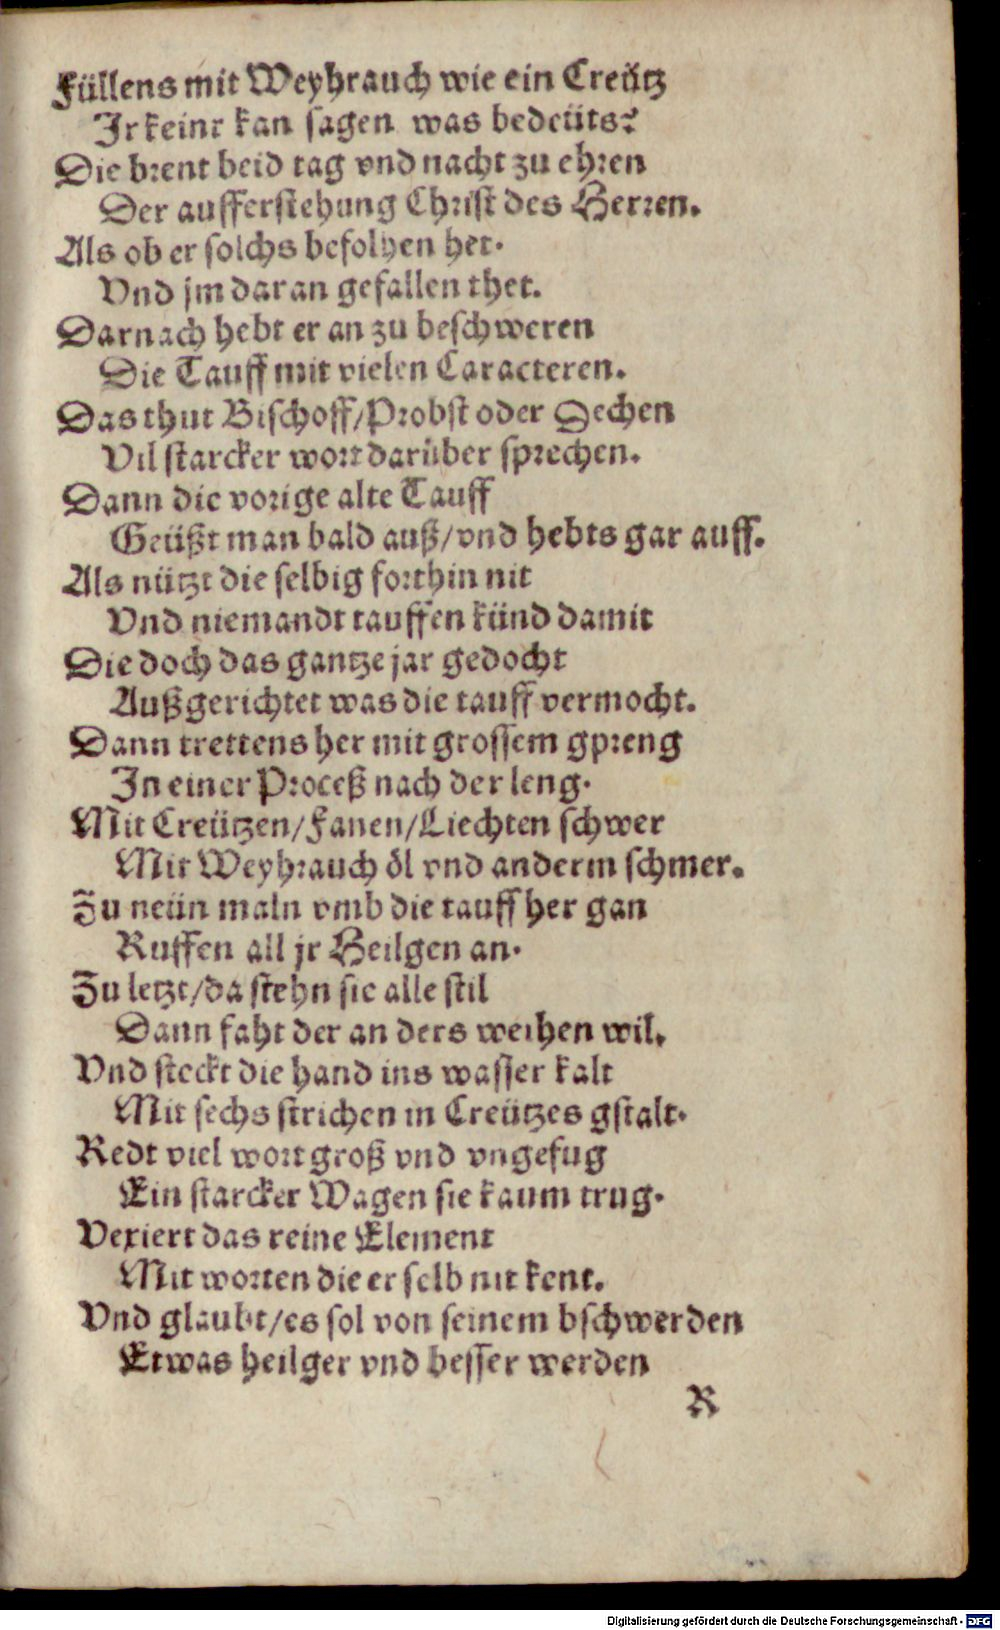 Füllens mit Weyhrauch wie ein Creütz
Ir keinr kan sagen was bedeüts?
Die brent beid tag vnd nacht zu ehren
Der aufferstehung Christ des Herren.
Als ob er solchs befolhen het.
Vnd jm daran gefallen thet.
Darnach hebt er an zu beschweren
Die Tauff mit vielen Caracteren.
Das thut Bischoff/Probst oder Dechen
Vil starcker wort darüber sprechen.
Dann die vorige alte Tauff
Geüßt man bald auß/vnd hebts gar auff.
Als nützt die selbig forthin nit
Vnd niemandt tauffen künd damit
Die doch das gantze jar gedocht
Außgerichtet was die tauff vermocht.
Dann trettens her mit grossem gpreng
In einer Proceß nach der leng.
Mit Creützen/Fanen/Liechten schwer
Mit Weyhrauch öl vnd anderm schmer.
Zu neün maln vmb die tauff her gan
Ruffen all jr Heilgen an.
Zu letzt/da stehn sie alle stil
Dann faht der an ders weihen wil.
Vnd steckt die hand ins wasser kalt
Mit sechs strichen in Creützes gstalt.
Redt viel wort groß vnd vngefug
Ein starcker Wagen sie kaum trug.
Vexiert das reine Element
Mit worten die er selb nit kent.
Vnd glaubt/es sol von seinem bschwerden
Etwas heilger vnd besser werden
R
Digitalisierung gefördert durch die Deutsche Forschungsgemeinschaft - DFG